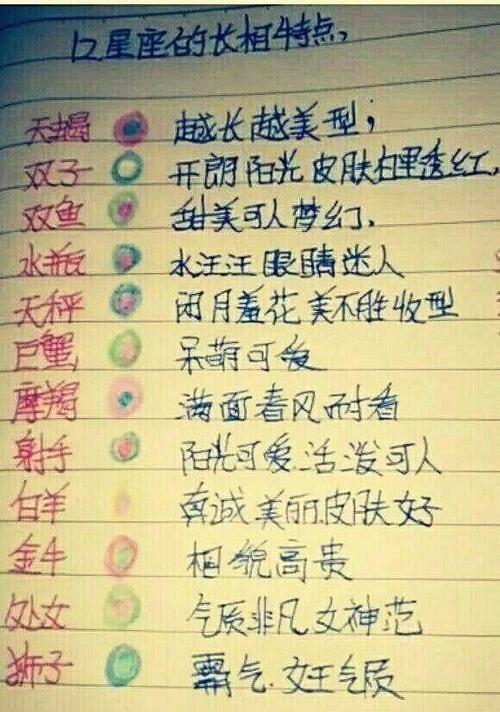 12星座的长相特点,
天蝎 越长越美型;
双子 开朗阳光皮肤白里透红,
双鱼 甜美可人梦幻.
水瓶 水汪汪眼睛迷人
天秤 闭月羞花美不胜收型
巨蟹 呆萌可爱
摩羯 满面春风耐看
射手 阳光可爱.活泼可人
白羊 真诚美丽.皮肤好
金牛 相貌高贵
处女 气质非凡女神范
狮子 霸气.女王气质